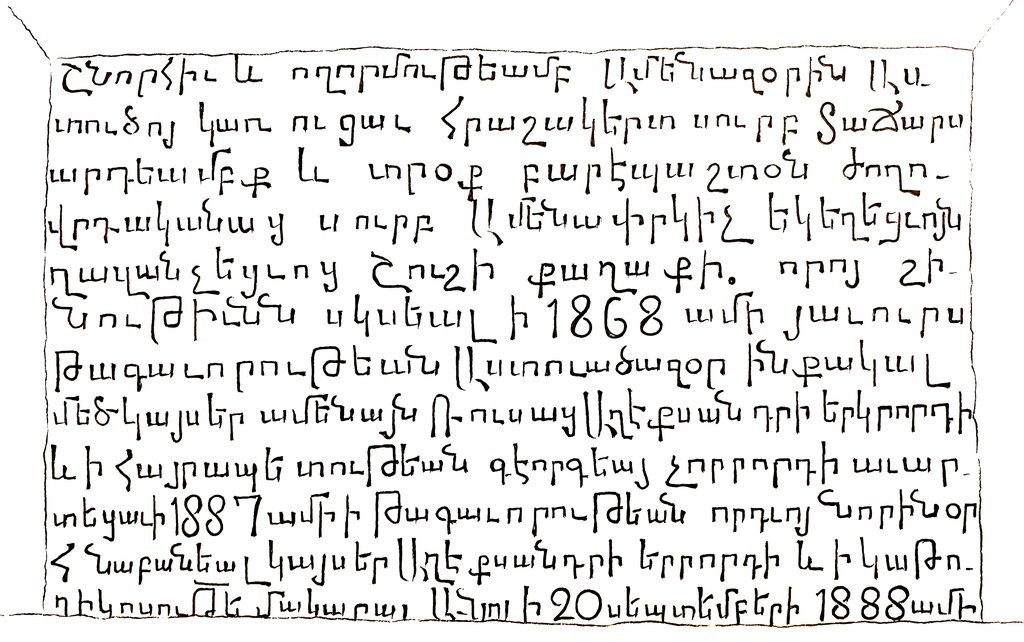 Շնորհիւ և ողորմութեամբ Ամենազօրին Աս-
տուծոյ կառուցաւ Հրաշակերտ սուրբ Տաճարս
արդեամբք և տրօք բարէպաշտօն ժողո-
վրդականաց սուրբ Ամենափրկիչ եկեղեցւոյն
ղազանչեցւոց Շուշի քաղաքի. որոյ շի-
նութիւնն սկսեալ ի 1868 ամի յաւուրս
Թագաւորութեան Աստուածազօր ինքակալ
մեծ կայսեր ամենայն Ռուսաց Աղէքսանդրի երկրորդի
և ի Հայրապետութեան գէորգեայ չորրորդի աւար-
տեցաւ ի 1887 ամի ի Թագաւորութեան որդւոյ նորին օր
Հնաբանեալ կայսեր Աղէքսանդրի երրորդի և ի կաթո-
ղիկոսութե մակարայ Անոյ ի 20 սեպտեմբերի 1888 ամի